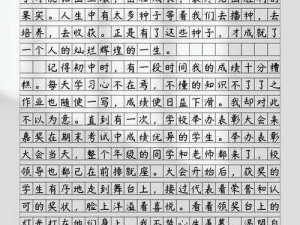 果。人生初中有太多种子等着我们去播种，去
培养，去收获。正是有了这些种子，才成就了
一个人的灿烂辉煌的一生。
记得初中时，有一段时间我的成绩十分糟
糕。每天学习心不在焉，不懂的知识不了了之
作业也随便写，成绩使日益下滑。我却对此不
以为意。直到有一次，学校举办表彰大会来
嘉奖在期末考试中成绩优异的学生。举办表彰
大会当天，整个年级的同学和老师都来了，校
领导也都已在前排就座。大会开始后，获奖的
学生有序地走到舞台上，接过代表着荣誉和认
可的奖状，脸上洋溢着喜悦。我看到舞台上的